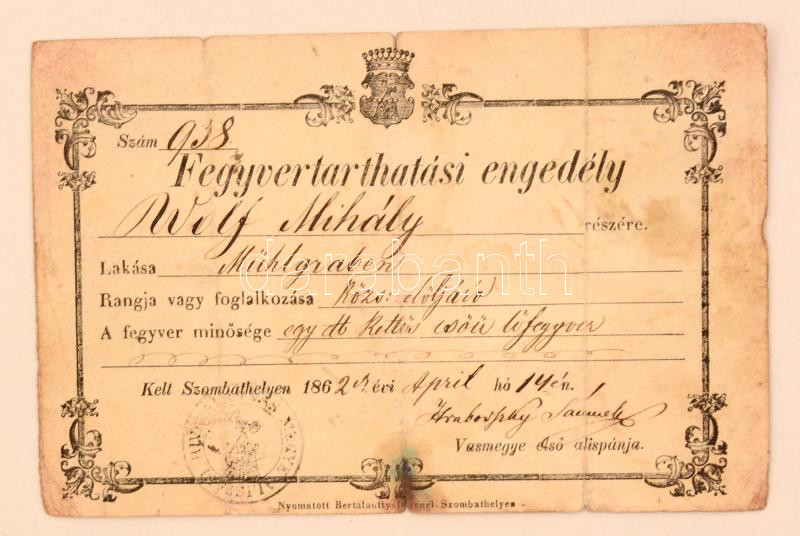 Szám 938.
Fegyvertarthatási engedély
Wolf Mihály részére.
Lakása Mühlgraben
Rangja vagy foglalkozása közs: elöljáró
A fegyver minősége egy db kettős csőű lőfegyver
Kelt Szombathelyen 1862 évi April hó 14én.
Hrabovszky
Vasmegye első alispánja.
Nyomatott Bertalanffy Szombathelyen.
darabanth